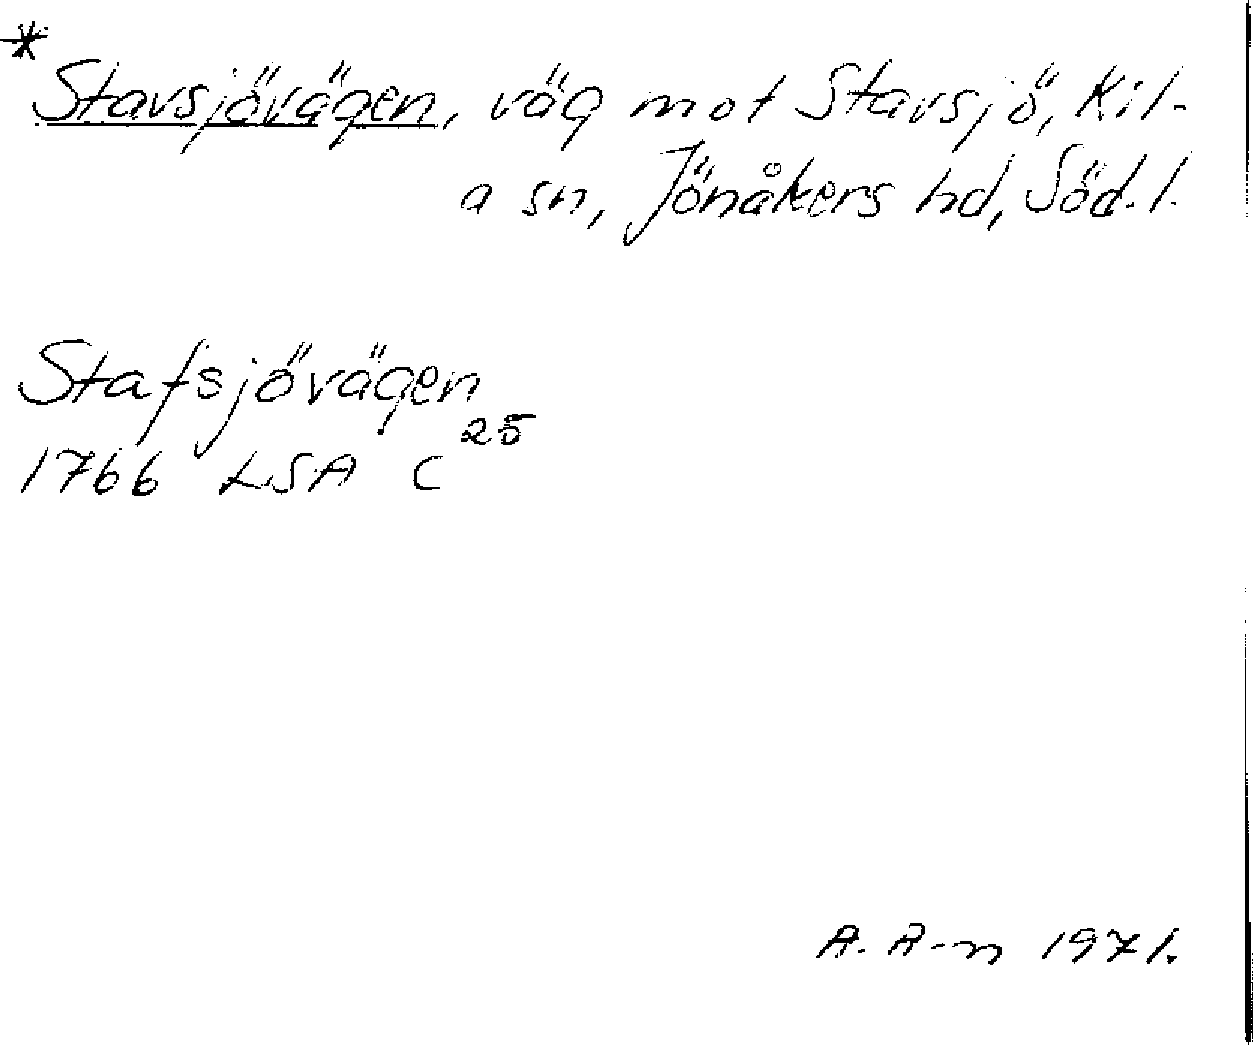 *Stavsjövägen, väg mot Stavsjö, Kil-
a sn, Jönåkers hd, Söd.l.
Stafsjövägen
1766 LSA C 25
A. R-n 1971.